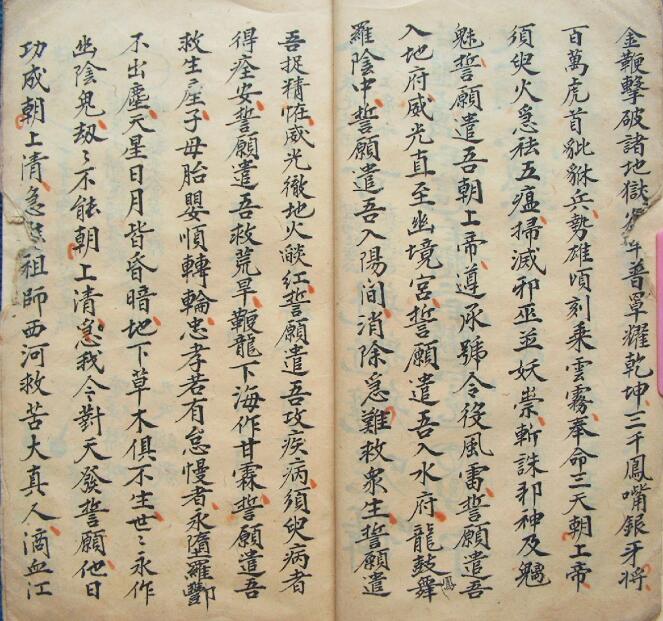 金鞭擊破諸地獄斗普罩耀乾坤三千鳳嘴銀牙將
百萬虎首貔貅兵勢雄頃刻乘雲霧奉命三天朝上帝
須臾火急祛五瘟掃滅邪巫並妖祟斬誅邪神及魍
魅誓願遣吾朝上帝遵承號令役風雷誓願遣吾
入地府威光直至幽境宮誓願遣吾入水府龍鼓舞鳳
羅陰中誓願遣吾入陽間消除急難救衆生誓願遣
吾捉精恠威光徹地火燄紅誓願遣吾攻疾病須臾病者
得痊安誓願遣吾救荒旱鞭龍下海作甘霖誓願遣吾
救生產子母胎嬰順轉輪忠孝若有怠慢者永墮羅酆
不出塵天星日月皆昏暗地下草木俱不生世〻永作
幽陰鬼劫〻不能朝上清急我今對天發誓願他日
功成朝上清急祖師西河救苦大真人滴血江